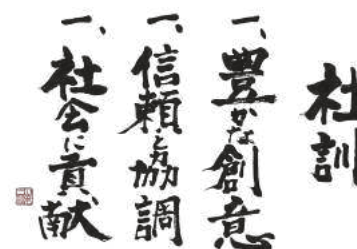 社訓
一、豊かな創意
一、信頼と協調
一、社会に貢献